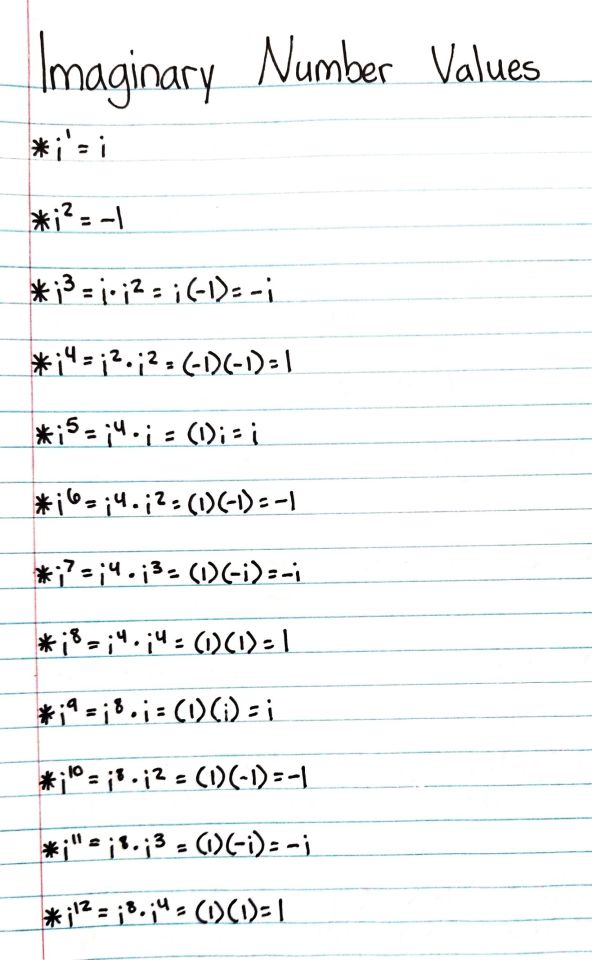 Imaginary Number Values
*i¹ = i
*i² = -1
*i³ = i·i² = i(-1) = -i
*i⁴ = i²·i² = (-1)(-1) = 1
*i⁵ = i⁴·i = (1)i = i
*i⁶ = i⁴·i² = (1)(-1) = -1
*i⁷ = i⁴·i³ = (1)(-i) = -i
*i⁸ = i⁴·i⁴ = (1)(1) = 1
*i⁹ = i⁸·i = (1)(i) = i
*i¹⁰ = i⁸·i² = (1)(-1) = -1
*i¹¹ = i⁸·i³ = (1)(-i) = -i
*i¹² = i⁸·i⁴ = (1)(1) = 1